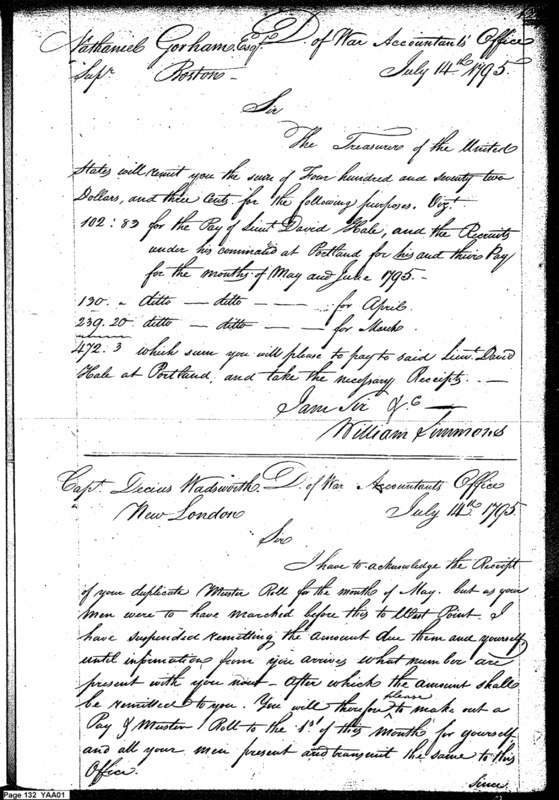 Nathaniel Gorham Esqr. D. of War Accountants Office
Supr. Boston - July 14th 1795
Sir
The Treasurer of the United
States will remit you the sum of Four hundred and seventy two
Dollars, and three Cents. for the following purposes. Vizt.
102:83 for the Pay of Lieut David Hale, and the Recruits
under his command at Portland for his and their Pay
for the months of May and June 1795. -
130. " ditto — ditto — — for April.
239.20 ditto — ditto — — for March.
472:3 which sum you will please to pay to said Lieut. David
Hale at Portland, and take the necessary Receipts. —
I am Sir &c —
William Simmons
Capt. Decius Wadsworth. D. of War Accountants Office
New London July 14th 1795.
Sir
I have to acknowledge the Receipt
of your duplicate Muster Roll for the month of May. but as your
men were to have marched before this to West Point. I
have suspended remitting the amount due them and yourself
until information from you arrives what number are
present with you now - after which the amount shall
be remitted to you. You will therefore please to make out a
Pay & Muster Roll to the 1st of this month for yourself
and all your men present and transmit the same to this
Office.
Since
Page 132 YAA01